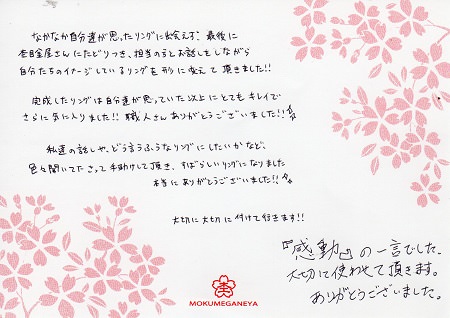 なかなか自分達が思ったリングに出会えず、最後に
杢目金屋さんにたどりつき、担当の方とお話しをしながら
自分たちのイメージしているリングを形に変えて頂きました!!
完成したリングは自分達が思っていた以上にとてもキレイで
さらに気に入りました!! 職人さんありがとうございました!!
私達の話しや、どう言うふうなリングにしたいかなど、
色々聞いて下さって手助けして頂き、すばらしいリングになりました
本当にありがとうございました!!
大切に大切に付けて行きます!!
『感動』の一言でした。
大切に使わせて頂きます。
ありがとうございました。
MOKUMEGANEYA